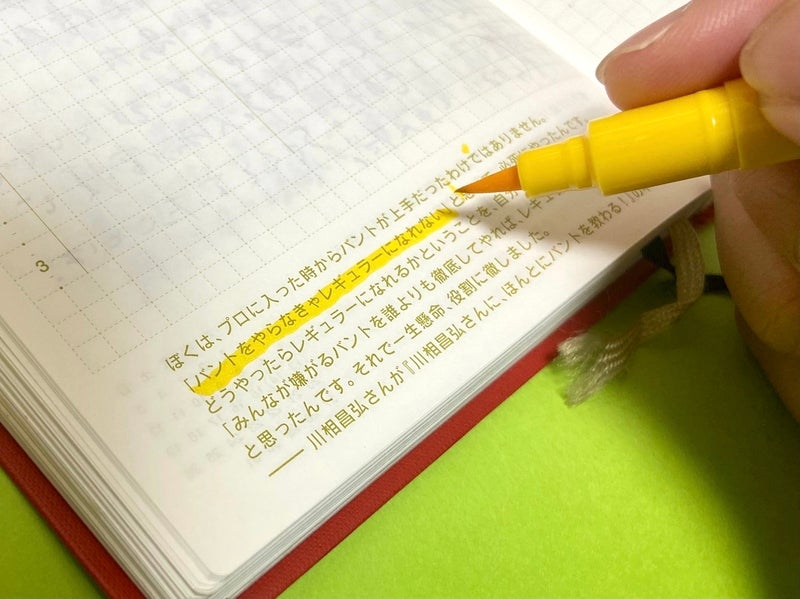 3
ぼくは、プロに入った時からバントが上手だったわけではありません。
「バントをやらなきゃレギュラーになれない」と 必死にやったんです。
どうやったらレギュラーになれるかということを、自分
「みんなが嫌がるバントを誰よりも徹底してやれば、レギュ
と思ったんです。それで一生懸命、役割に徹しました。
── 川相昌弘さんが『川相昌弘さんに、ほんとにバントを教わる！』の